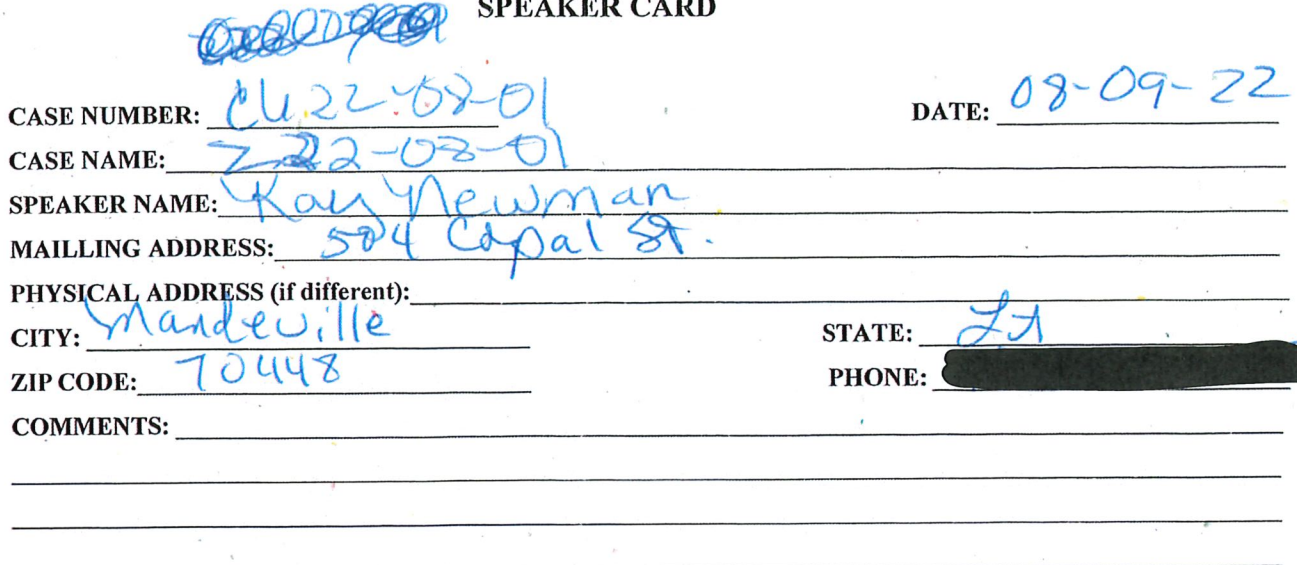 SPEAKER CARD
CASE NUMBER: CU22-08-01 DATE: 08-09-22
CASE NAME: Z22-08-01
SPEAKER NAME: Kay Newman
MAILLING ADDRESS: 504 St.
PHYSICAL ADDRESS (if different):
CITY: Mandeville STATE: LA
ZIP CODE: 70448 PHONE:
COMMENTS: